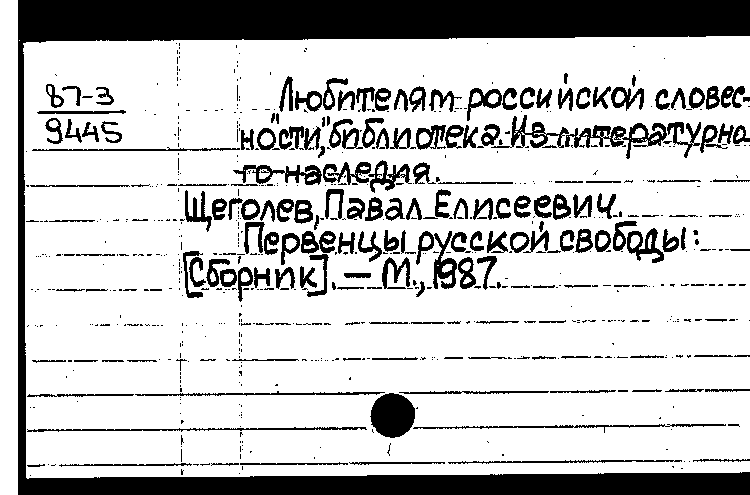 87-3
9445
Любителям российской словес-
ности", библиотека. Из литературно
го наследия.
Щеголев, Павал Елисеевич.
Первенцы русской свободы:
[Сборник]. — М., 1987.